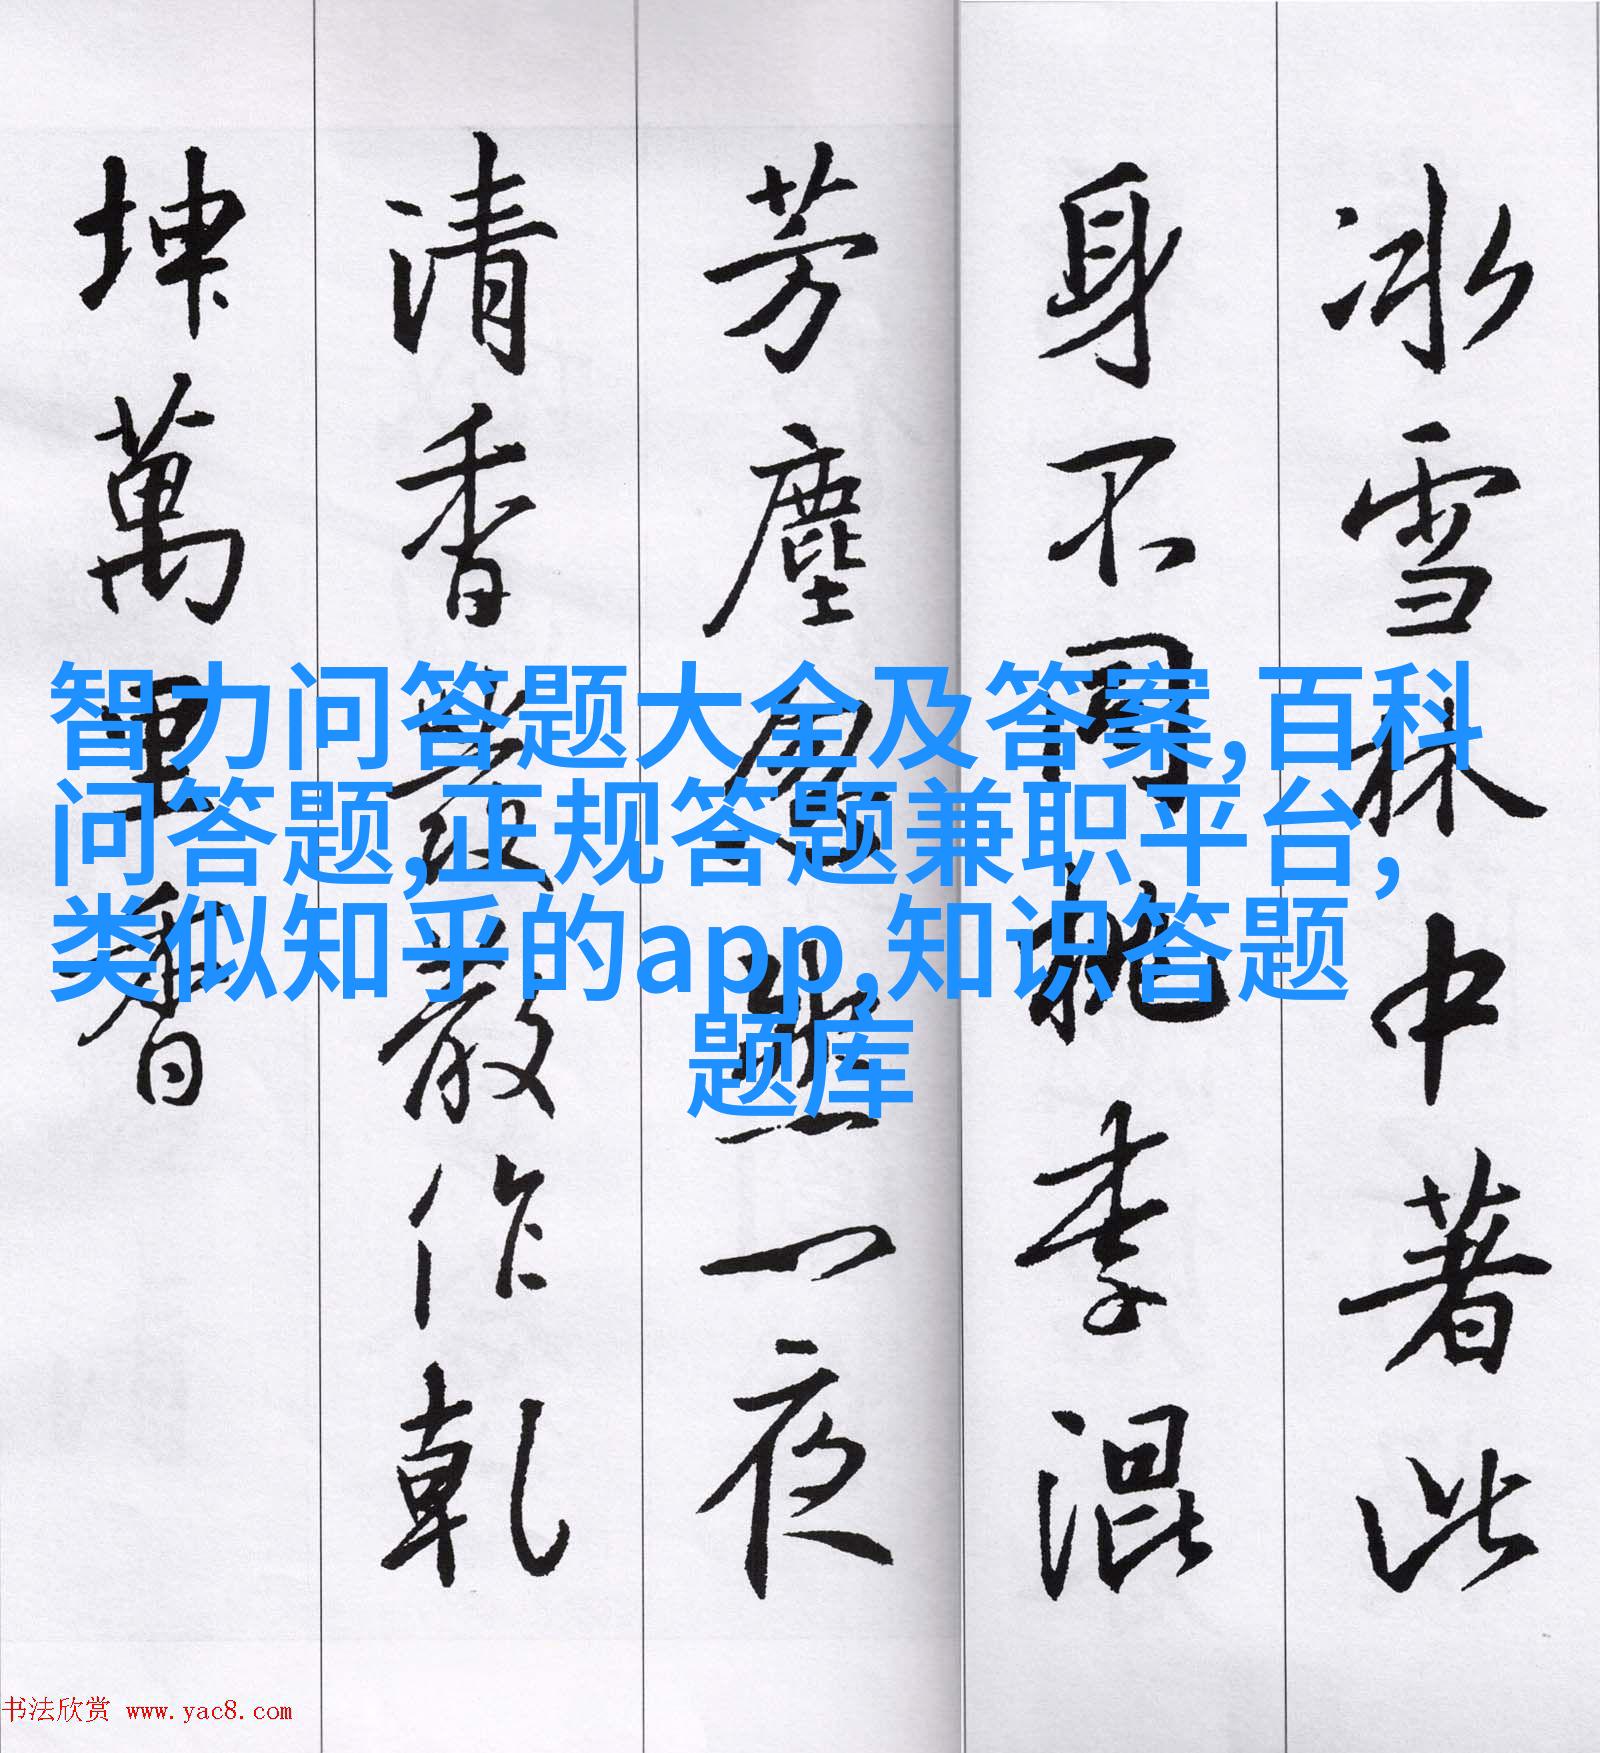 冰雪林中著此
身不同桃李混
芳塵忽然一夜
清香發散作乾
坤萬里春
智力问答题大全及答案,百科
问答题,正规答题兼职平台,
类似知乎的app,知识答题
题库
书法欣赏 www.yac8.com